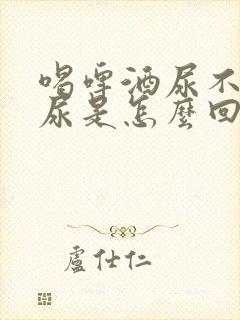 喝啤酒尿不
尿是怎麼回
盧仕仁